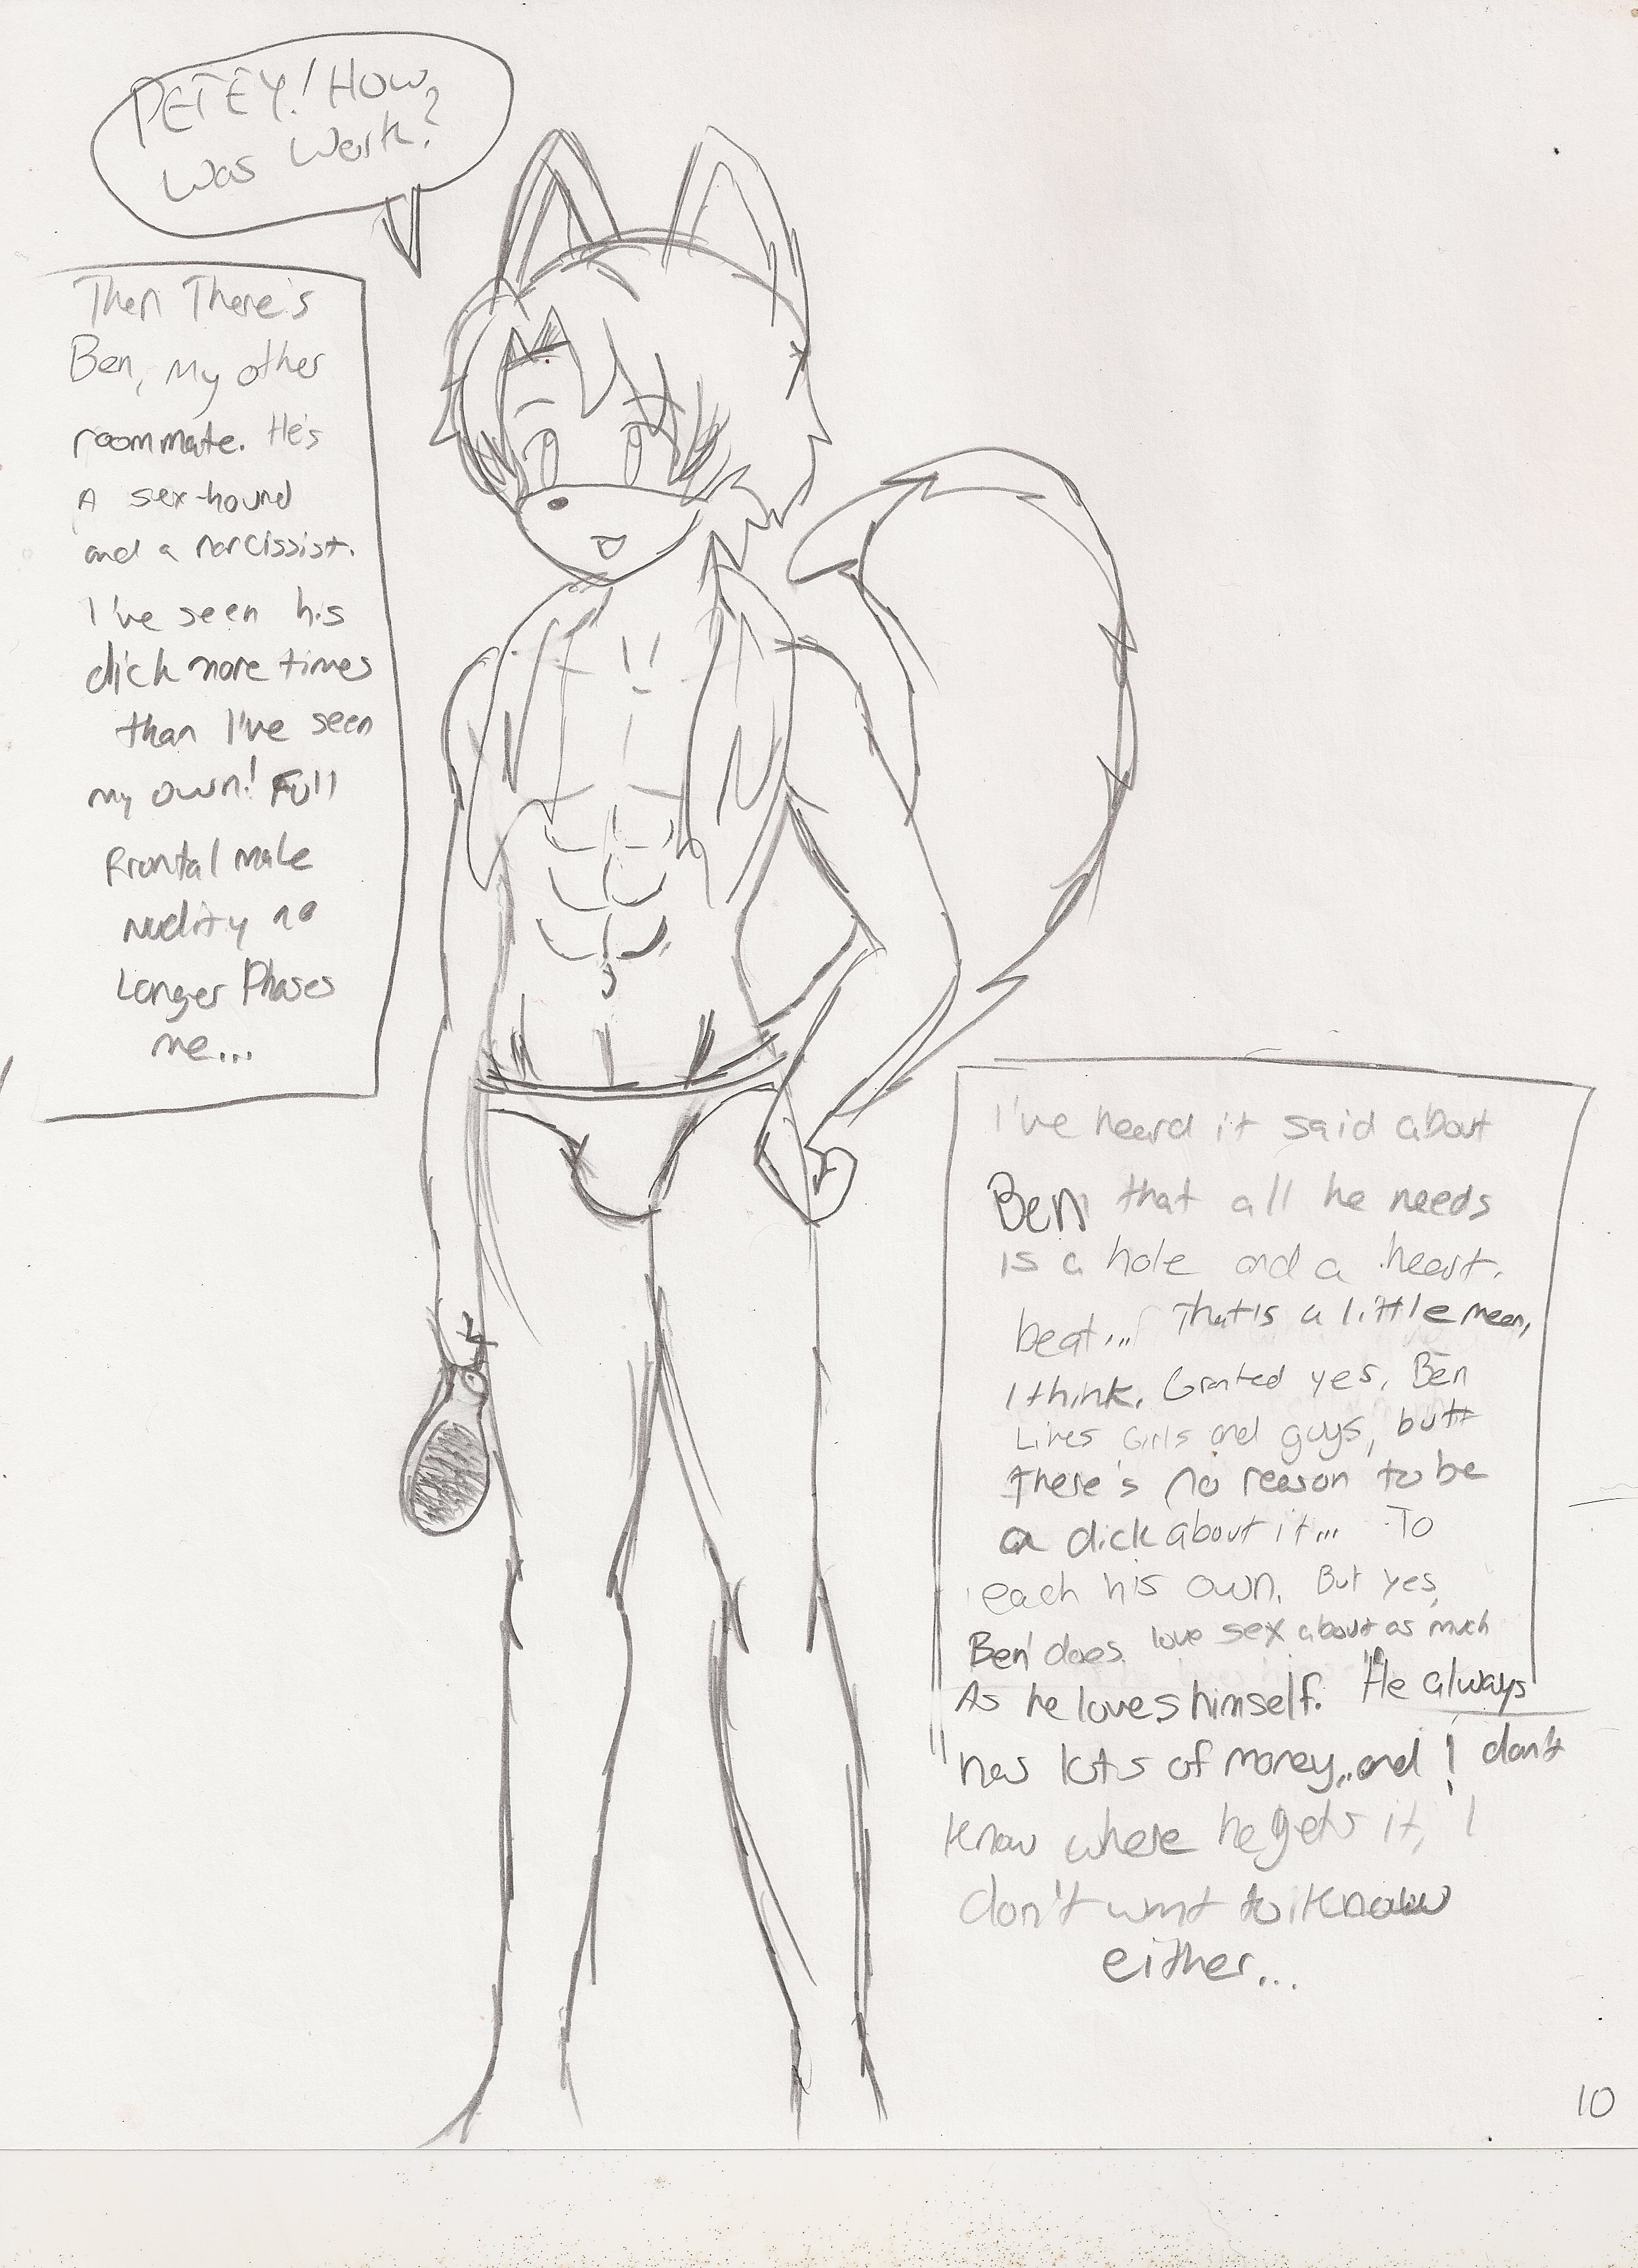 PETEY! HOW
was work?
Then There's
Ben, my other
roommate. He's
A sex-hound
and a narcissist.
I've seen his
dick more times
than I've seen
my own! Full
frontal male
nudity no
Longer Phases
me...
I've heard it said about
Ben that all he needs
is a hole and a heart.
beat... That is a little mean,
I think. Granted yes, Ben
Likes Girls and guys, butt
there's no reason to be
a dick about it... To
each his own. But yes,
Ben does love sex about as much
As he loves himself. He always
has lots of money, and I don't
know where he gets it, I
don't want to know
either...
10